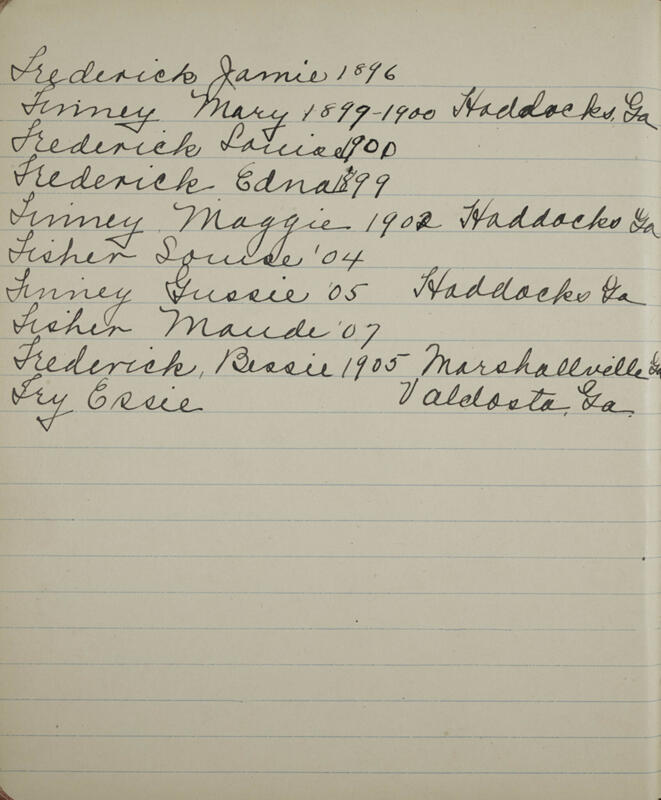 Frederick Jamie 1896
Finney Mary 1899-1900 Haddocks, Ga
Frederick Louise 1900
Frederick Edna 1899
Finney Maggie 1902 Haddocks Ga
Fisher Louise '04
Finney Gussie '05 Haddocks Ga
Fisher Maude '07
Frederick, Bessie 1905 Marshallville Ga
Fry Essie Valdosta, Ga.